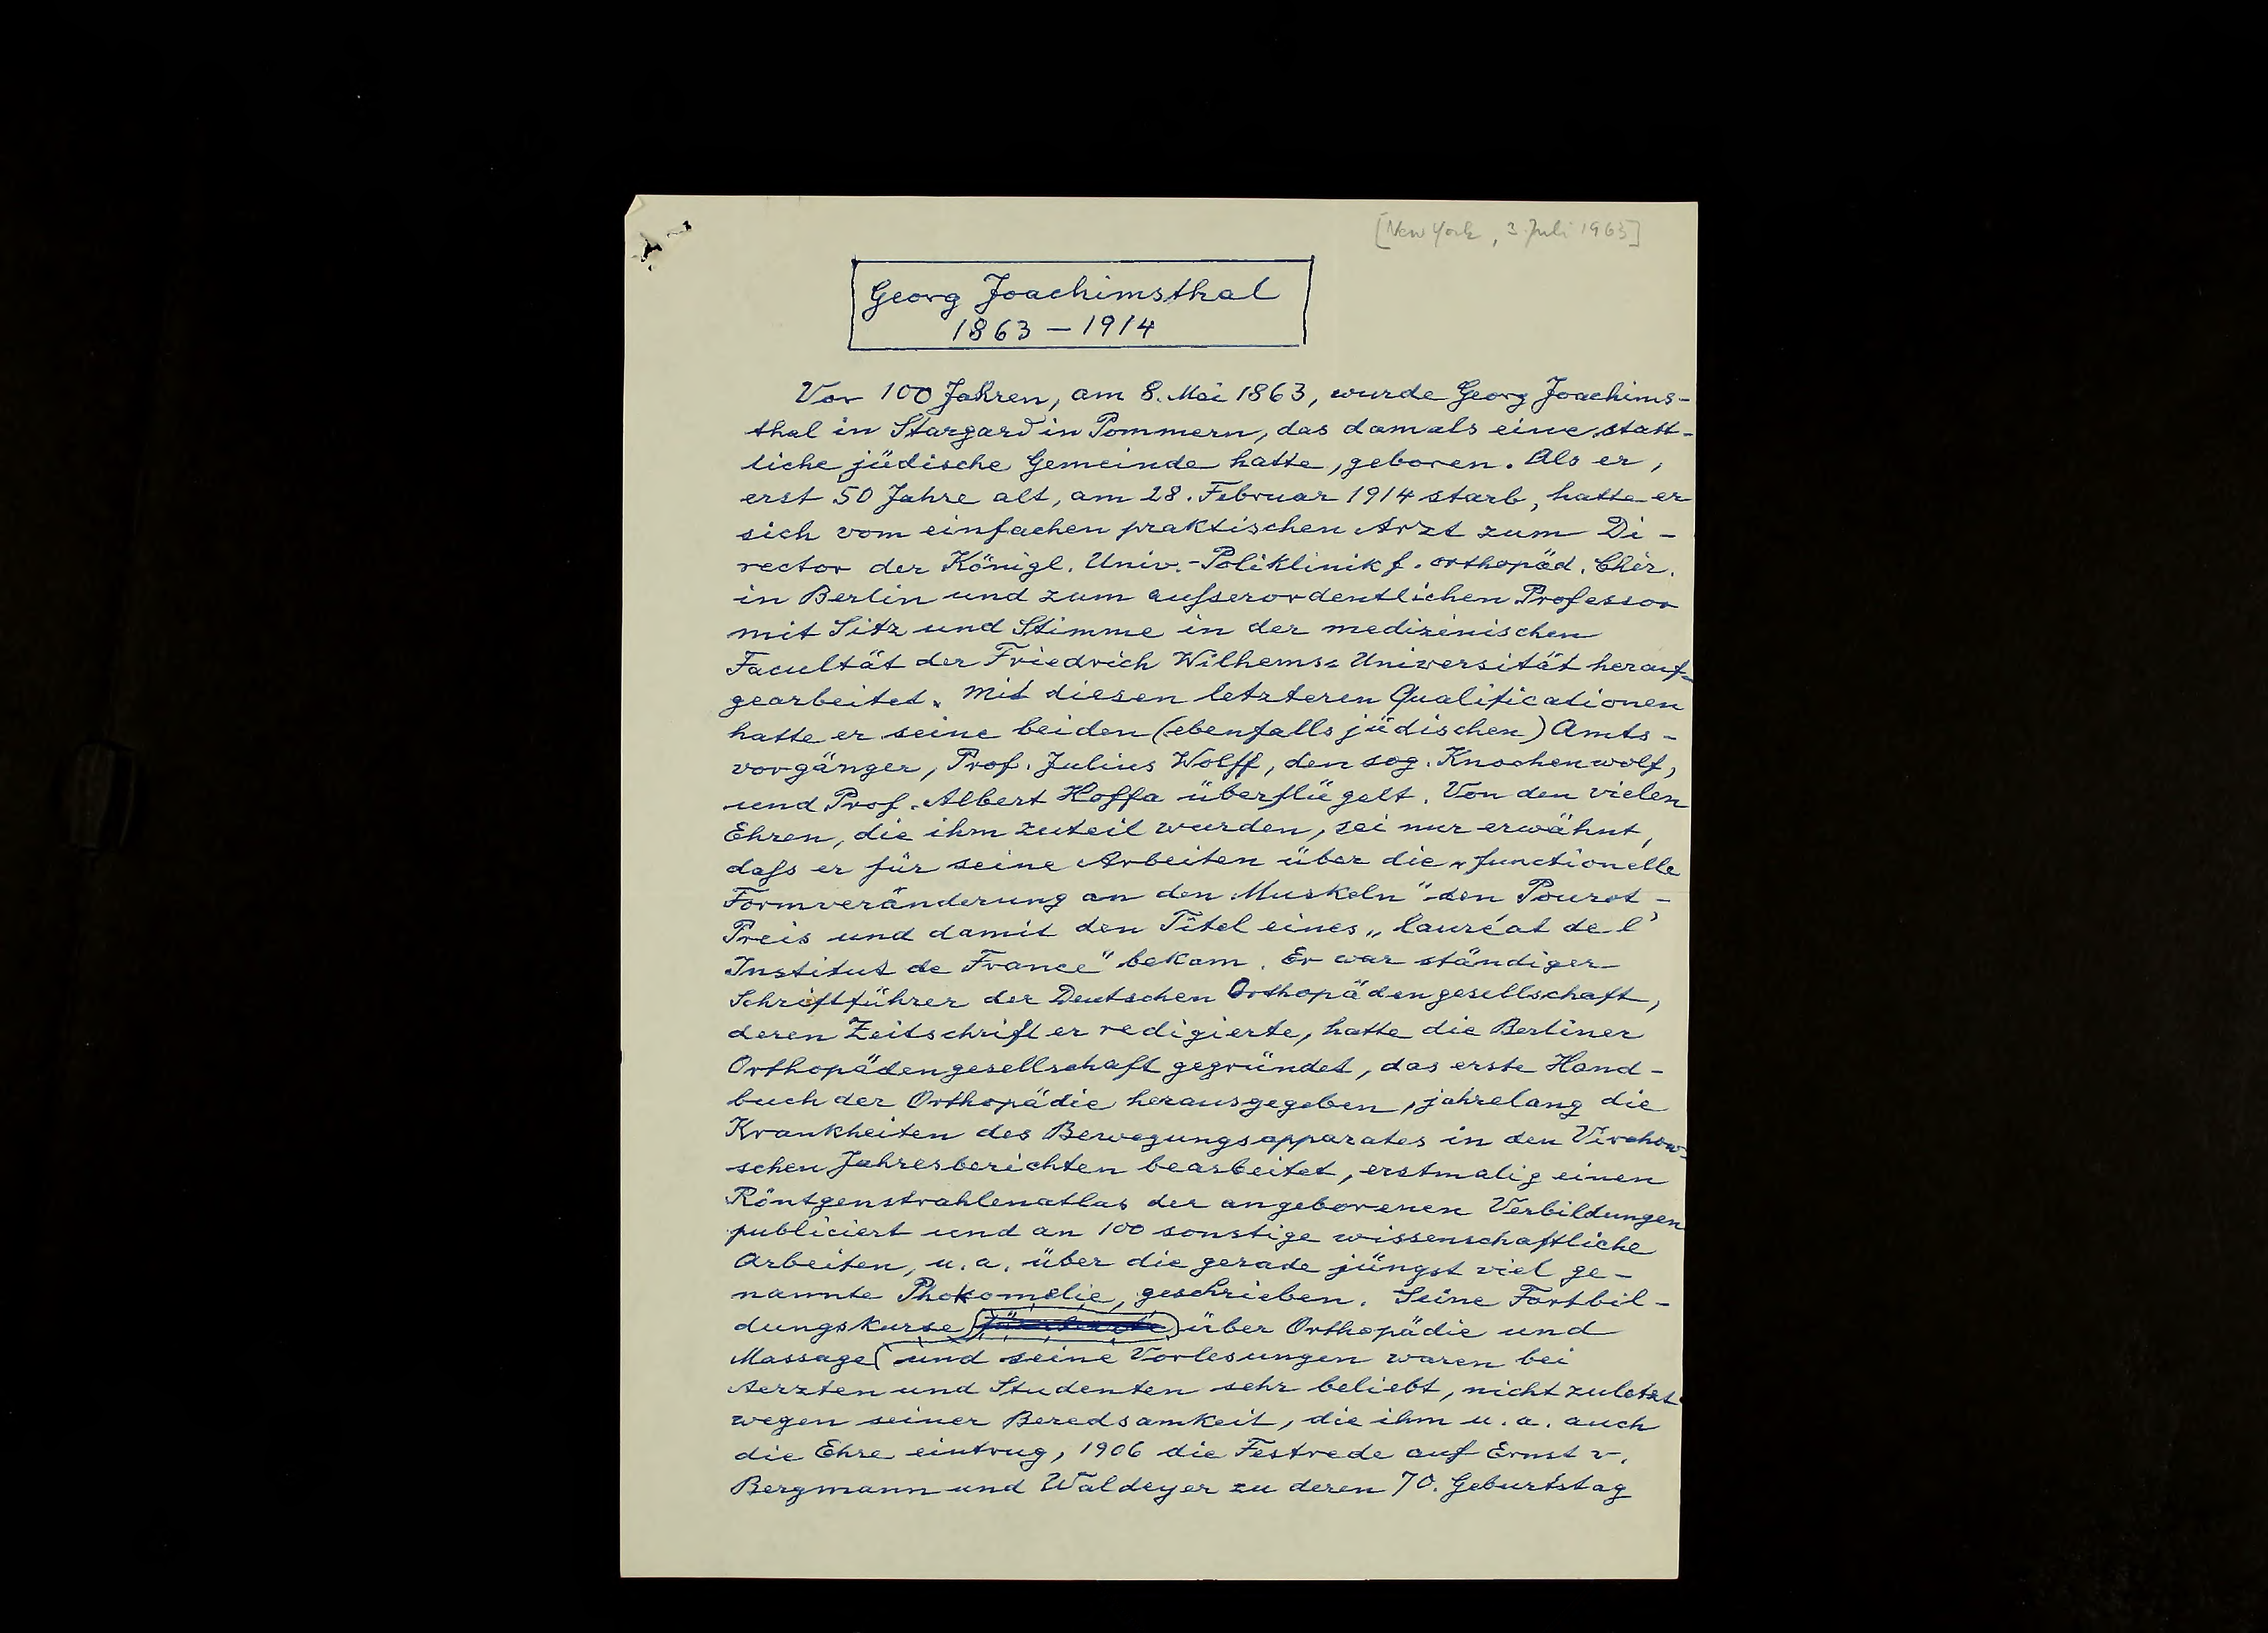 [New York, 3. Juli 1963]
Georg Joachimsthal
1863 – 1914
Vor 100 Jahren, am 8. Mai 1863, wurde Georg Joachims-
thal in Stargard in Pommern, das damals eine statt-
liche jüdische Gemeinde hatte, geboren. Als er,
erst 50 Jahre alt, am 28. Februar 1914 starb, hatte er
sich vom einfachen praktischen Arzt zum Di-
rector der Königl. Univ.-Poliklinik f. orthopäd. Chir.
in Berlin und zum außerordentlichen Professor
mit Sitz und Stimme in der medizinischen
Facultät der Friedrich Wilhems-Universität herauf-
gearbeitet. Mit diesen letzteren Qualificationen
hatte er seine beiden (ebenfalls jüdischen) Amts-
vorgänger, Prof. Julius Wolff, den sog. Knochenwolf,
und Prof. Albert Hoffa überflügelt. Von den vielen
Ehren, die ihm zuteil wurden, sei nur erwähnt,
daß er für seine Arbeiten über die „functionelle
Formveränderung an den Muskeln" den Pourat-
Preis und damit den Titel eines „lauréat de l'
Institut de France" bekam. Er war ständiger
Schriftführer der Deutschen Orthopädengesellschaft,
deren Zeitschrift er redigierte, hatte die Berliner
Orthopädengesellschaft gegründet, das erste Hand-
buch der Orthopädie herausgegeben, jahrelang die
Krankheiten des Bewegungsapparates in den Virchow-
schen Jahresberichten bearbeitet, erstmalig einen
Röntgenstrahlenatlas der angeborenen Verbildungen
publiciert und an 100 sonstige wissenschaftliche
Arbeiten, u. a. über die gerade jüngst viel ge-
nannte Phokomelie, geschrieben. Seine Fortbil-
dungskurse über Orthopädie und
Massage und seine Vorlesungen waren bei
Aerzten und Studenten sehr beliebt, nicht zuletzt
wegen seiner Beredsamkeit, die ihm u. a. auch
die Ehre eintrug, 1906 die Festrede auf Ernst v.
Bergmann und Waldeyer zu deren 70. Geburtstag